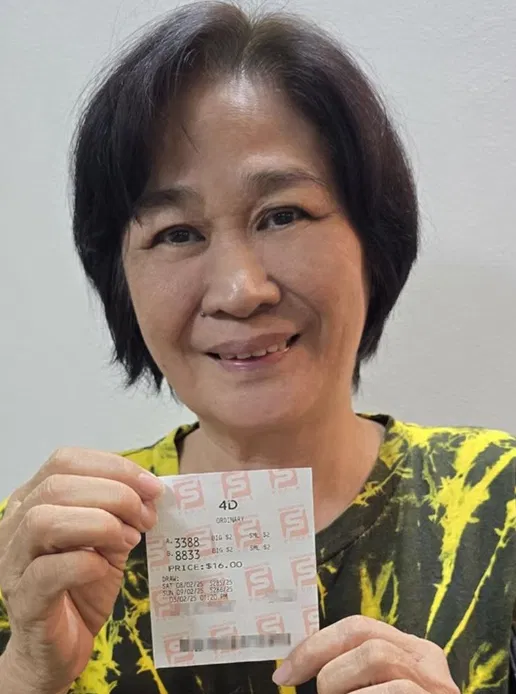 4D
ORDINARY
A. 3388 BIG $2 SML $2
B. 8833 BIG $2 SML $2
PRICE:$16.00
DRAW:
SAT 08/02/25
SUN 09/02/25
/02/25 PM